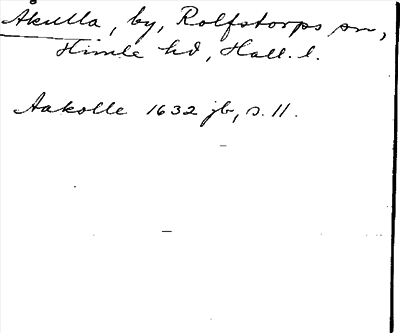 Åkulla, by, Rolfstorps sn,
Himle hd, Hall. l.
Aakolle 1632 jb, s. 11.